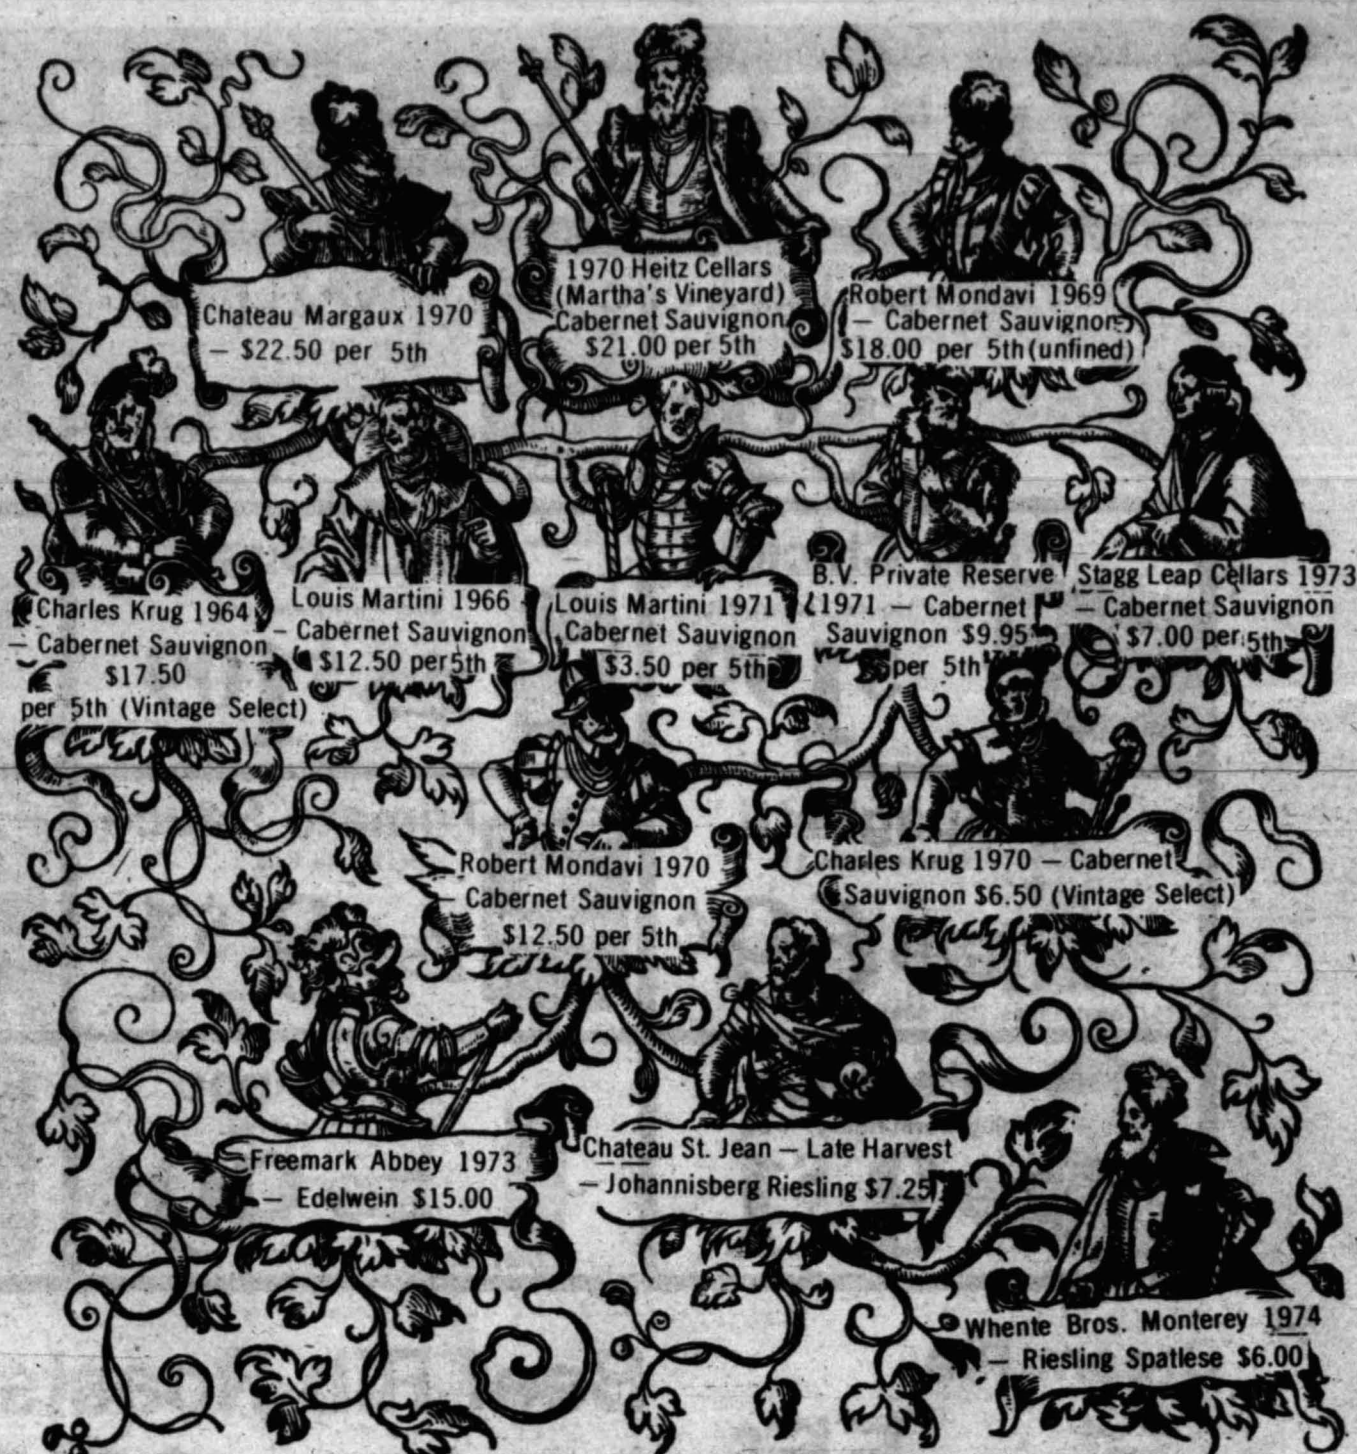 Chateau Margaux 1970
— $22.50 per 5th
1970 Heitz Cellars
(Martha's Vineyard)
Cabernet Sauvignon
$21.00 per 5th
Robert Mondavi 1969
— Cabernet Sauvignon
$18.00 per 5th (unfined)
Charles Krug 1964
— Cabernet Sauvignon
$17.50
per 5th (Vintage Select)
Louis Martini 1966
— Cabernet Sauvignon
$12.50 per 5th
Louis Martini 1971
Cabernet Sauvignon
$3.50 per 5th
B.V. Private Reserve
1971 — Cabernet
Sauvignon $9.95
per 5th
Stagg Leap Cellars 1973
— Cabernet Sauvignon
$7.00 per 5th
Robert Mondavi 1970
— Cabernet Sauvignon
$12.50 per 5th
Charles Krug 1970 — Cabernet
Sauvignon $6.50 (Vintage Select)
Freemark Abbey 1973
— Edelwein $15.00
Chateau St. Jean — Late Harvest
— Johannisberg Riesling $7.25
Whente Bros. Monterey 1974
— Riesling Spatlese $6.00